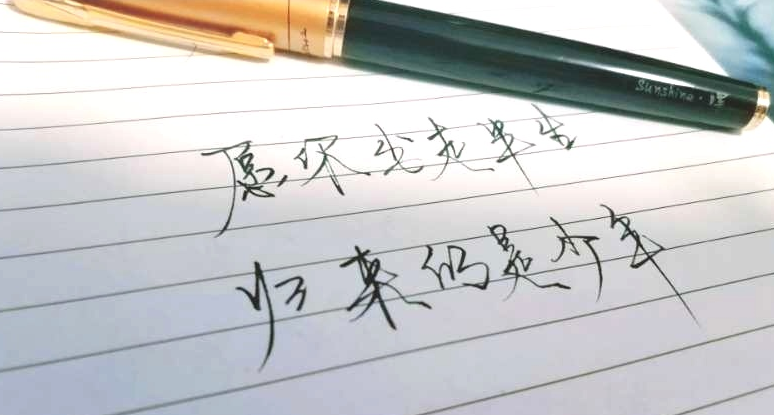 Sunshine ·
愿你出走半生
归来仍是少年